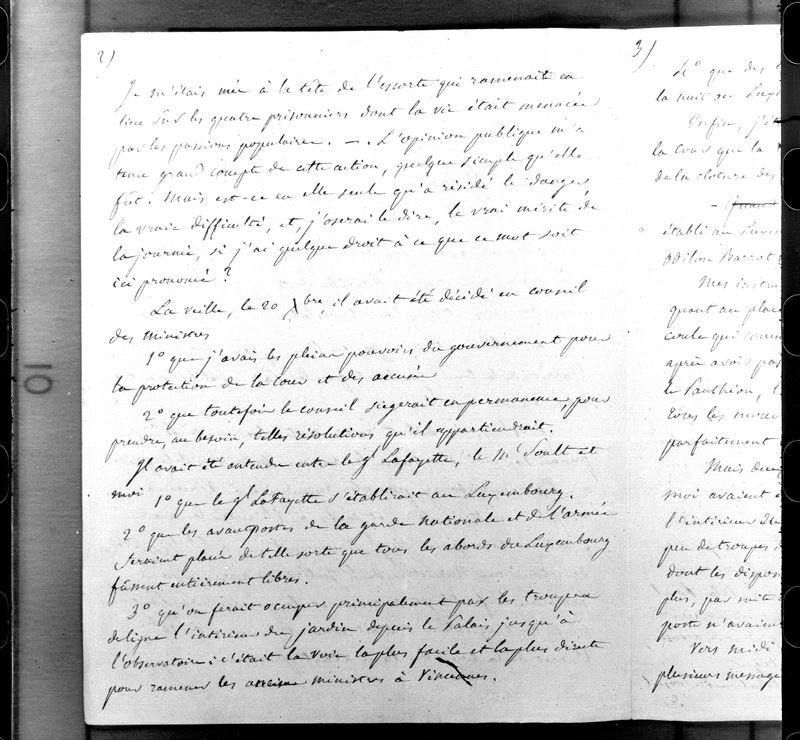 2)
Je m'étais mis à la tête de l'escorte qui ramenait en
lieu sûr les quatre prisonniers dont la vie était menacée
par les passions populaires. —. L'opinion publique m'a
tenu grand compte de cette action, quelque simple qu'elle
fût. Mais est-ce en elle seule qu'a résidé le danger
la vraie difficulté, et, j'oserai le dire, le vrai mérite de
la journée, si j'ai quelque droit à ce que ce mot soit
ici prononcé ?
La veille, le 20 Xbre il avait été décidé en conseil
des ministres
1° que j'avais les pleins pouvoirs du gouvernement pour
la protection de la cour et des accusés
2° que toutefois le conseil siégerait en permanence, pour
prendre, au besoin, telles résolutions qu'il appartiendrait.
Il avait été entendu entre le gl Lafayette, le Ml Soult et
moi 1° que le gl Lafayette s'établirait au Luxembourg.
2° que les avant postes de la garde nationale et de l'armée
seraient placés de telle sorte que tous les abords du Luxembourg
fussent entièrement libres.
3° qu'on ferait occuper principalement par les troupes
de ligne l'intérieur du jardin depuis le Palais jusqu'à
l'observatoire : c'était la voie la plus facile et la plus directe
pour ramener les ministres à Vincennes.
3)
4° que des
la nuit au Lux
Enfin, j'ét
la cour que la
de la cloture des
établi au
Odilon Barrot
Mes instru
quant au plac
celle qui cons
après avoir pas
le Panthéon, l
parfaitement
Mais
moi avaient
l'intérieur
peu de troupes
dont les dispos
plus, par suite
poste n'avaien
Vers midi
plusieurs message
10